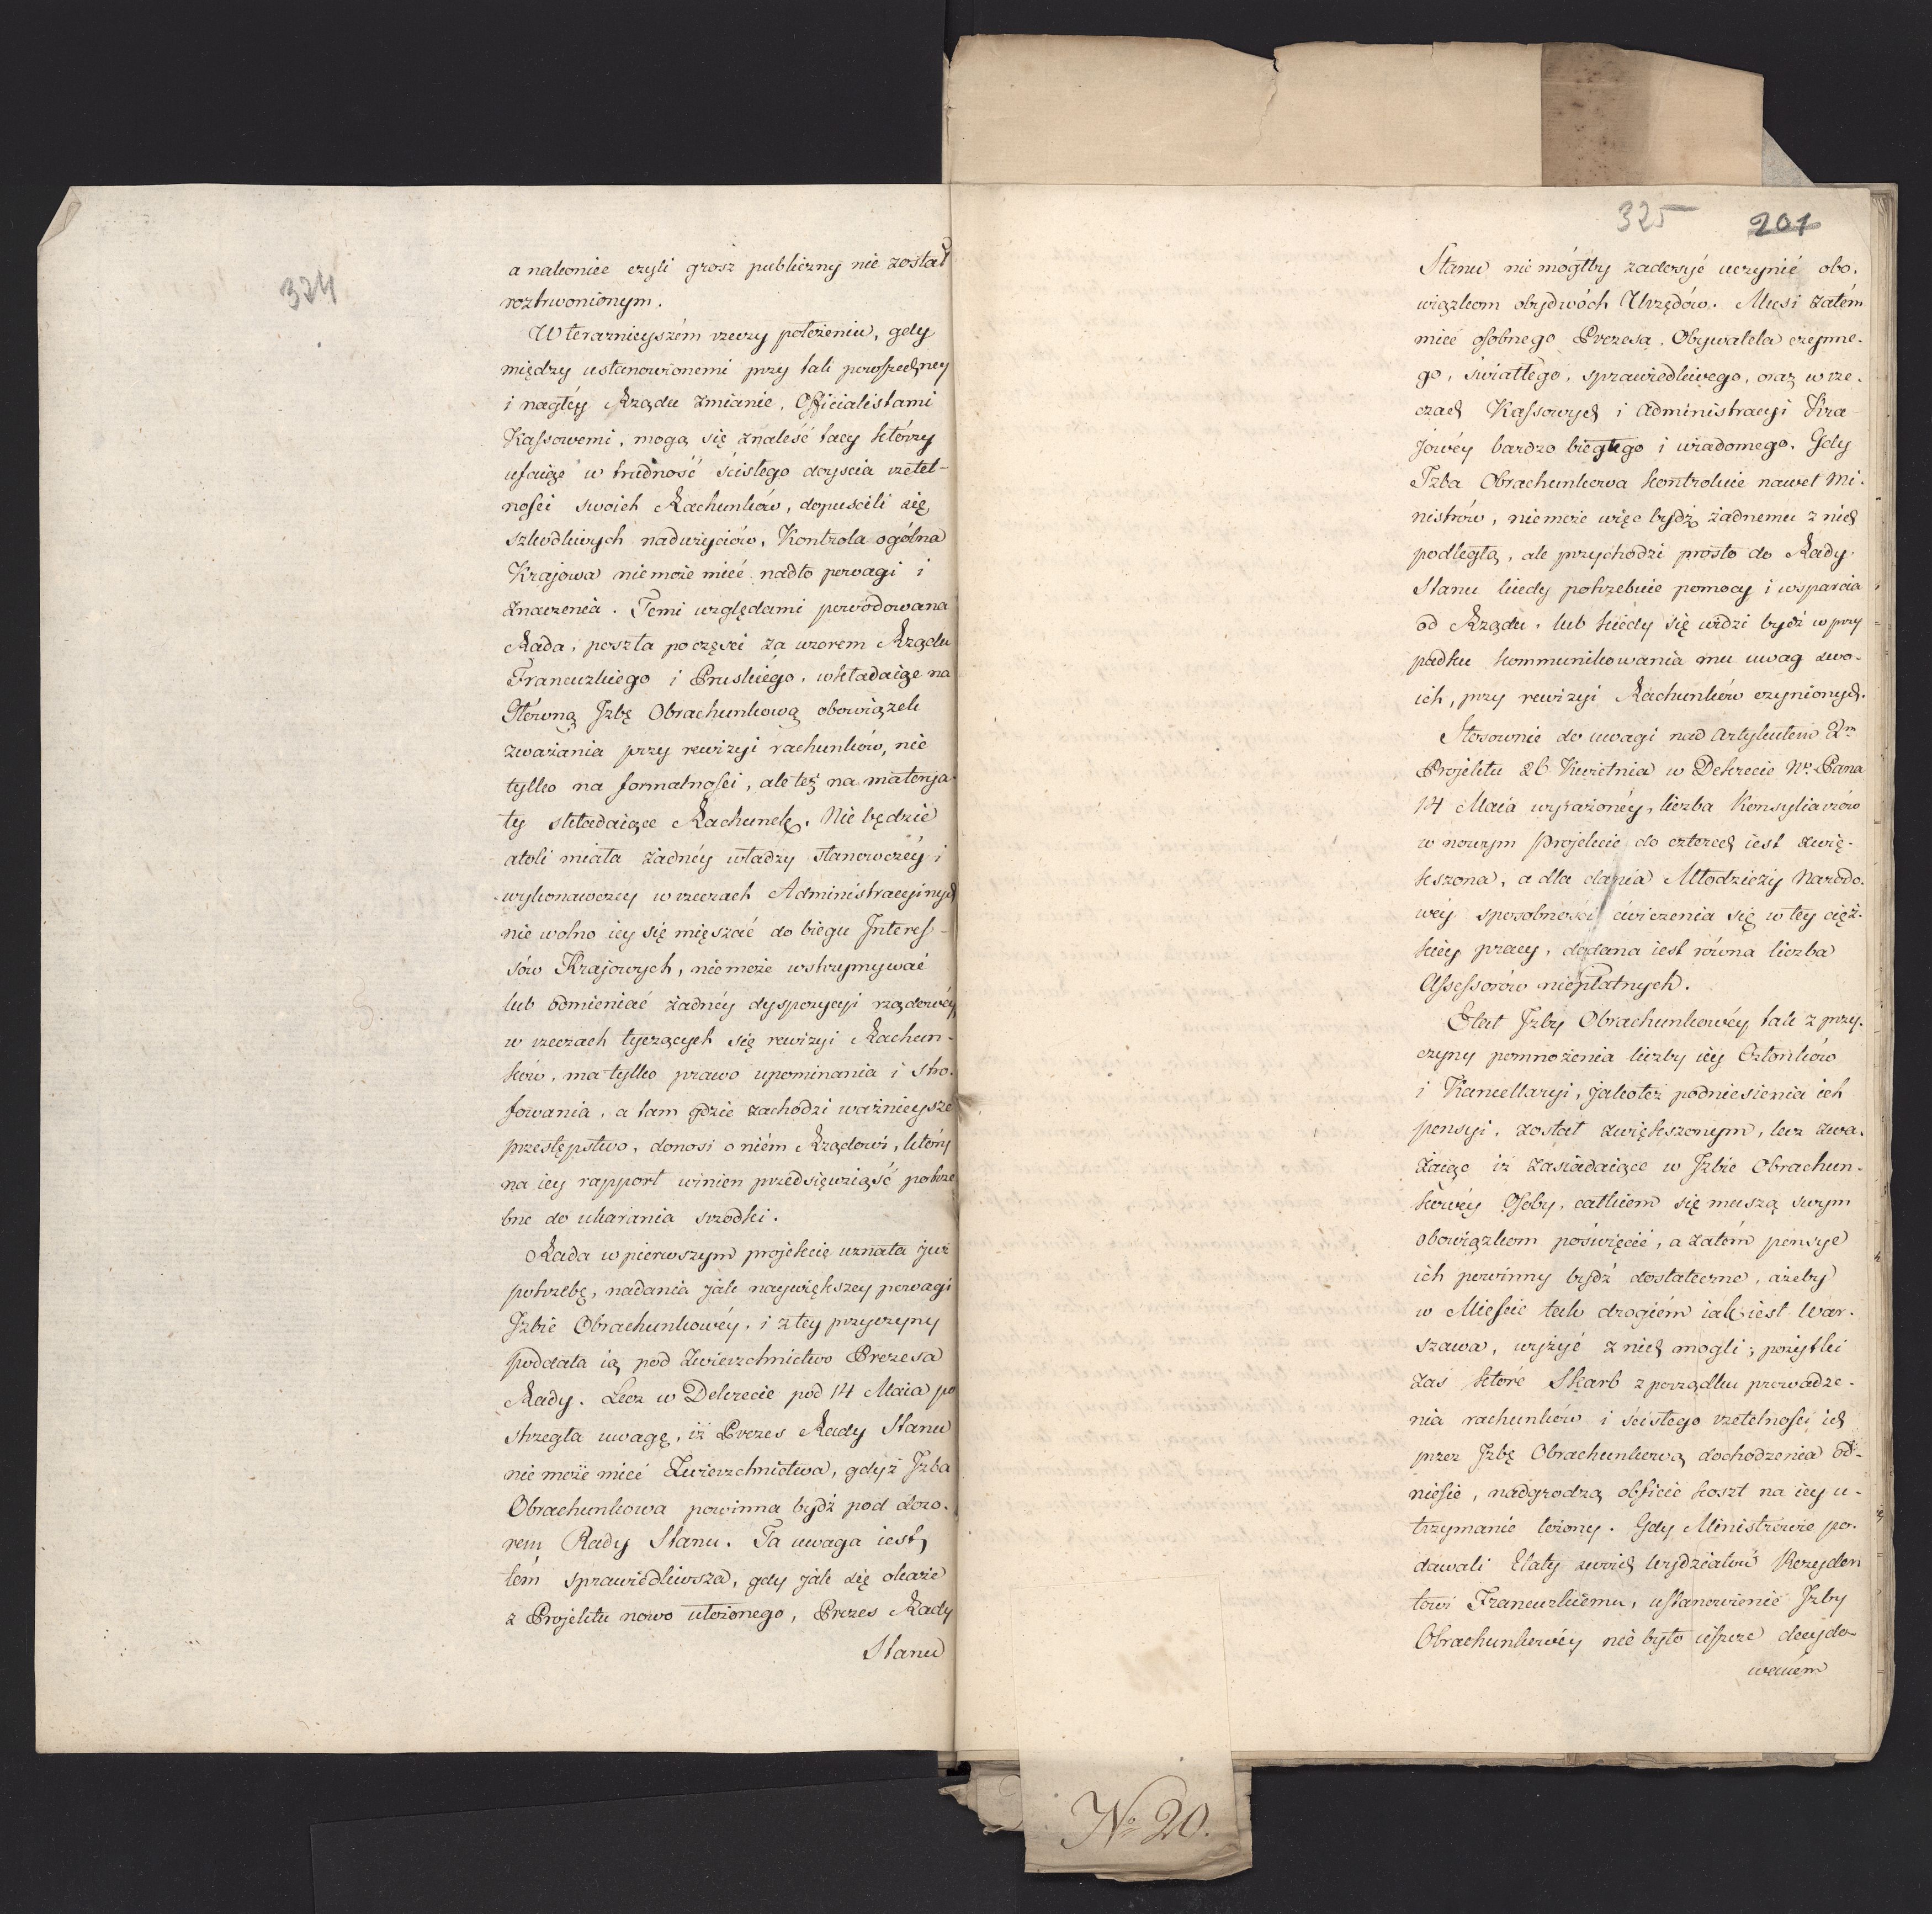 324
a nakoniec czyli grosz publiczny nie został
roztrwonionym.
W teraznieyszém rzeczy położeniu, gdy
między ustanowionemi przy tak pospieszney
i nagłéy Rządu zmianie, Officialistami
Kassowemi, mogą się znaleść tacy którzy
ufaiąc w trudność ścisłego doyscia rzetel-
ności swoich Rachunków, dopuscili się
szkodliwych nadużyciów, Kontrola ogólna
Krajowa nie może mieć nadto powagi i
znaczenia. Temi względami powodowana
Rada, poszła poczęsci za wzorem Rządu
Francuzkiego i Pruskiégo, wkładaiąc na
Główną Jzbę Obrachunkową obowiązek
zważania przy rewizyi rachunków, nie
tylko na formalności, ale też na materja-
ły składaiące Rachunek. Nie będzie
atoli miała żadnéy władzy stanowczéy i
wykonawczey w rzeczach Administracyinych
nie wolno iey się mięszać do biegu Interes-
sów Krajowych, nie może wstrzymywać
lub odmieniać żadnéy dyspozycyi rządowéy
w rzeczach tyczących się rewizyi Rachun-
ków, ma tylko prawo upominania i stro-
fowania, a tam gdzie zachodzi ważnieysze
przestępstwo, donosi o niém Rządowi, który
na iey rapport winien przedsięwziąść potrze
bne do ukarania srzodki.
Rada w pierwszym projekcie uznała już
potrzebę, nadania jak naywiększey powagi
Jzbie Obrachunkowéy, i z tey przyczyny
poddała ią pod Zwierzchnictwo Prezesa
Rady. Lecz w Dekrecie pod 14 Maia po
strzegła uwagę, iż Prezes Rady Stanu
nie może mieć Zwierzchnictwa, gdyż Jzba
Obrachunkowa powinna bydź pod dozo-
rem Rady Stanu. Ta uwaga iest
tém sprawiedliwsza, gdy jak się okaże
z Projektu nowo ułożonego, Prezes Rady
Stanu
325
201
Stanu nie mógłby zadosyć uczynić obo-
wiązkom obydwóch Urzędów. Musi zatém
mieć osobnego Prezesa, Obywatela czynne-
go, światłego, sprawiedliwego, oraz w rze-
czach Kassowych i Administracyi Kra-
jowéy bardzo biegłego i wiadomego. Gdy
Jzba Obrachunkowa kontroluie nawet Mi-
nistrów, nie może więc bydź żadnemu z nich
podległą, ale przychodzi prosto do Rady
Stanu kiedy potrzebuie pomocy i wsparcia
od Rządu, lub kiedy się widzi bydź w przy
padku kommunikowania mu uwag swo-
ich, przy rewizyi Rachunków czynionych.
Stosownie do uwagi nad Artykułem 2m
Projektu 26 Kwietnia w Dekrecie N. Pana
14 Maia wyrażonéy, liczba Konsyliarzów
w nowym Projekcie do czterech iest zwię-
kszona, a dla dania Młodzieży Narodo-
wéy sposobności ćwiczenia się w tey cięż-
kiéy pracy, dodana iest równa liczba
Assessorów niepłatnych.
Etat Jzby Obrachunkowéy tak z przy-
czyny pomnożenia liczby iéy Członków
i Kancellaryi, jakoteż podniesienia ich
pensyi, został zwiększonym, lecz zwa-
żaiąc iż zasiadaiące w Jzbie Obrachun-
kowéy Osoby, całkiem się muszą swym
obowiązkom poświęcić, a zatém pensye
ich powinny bydź dostateczne, ażeby
w Mieście tak drogiém iak iest War-
szawa, wyżyć z nich mogli; pożytki
zaś które Skarb z porządku prowadze-
nia rachunków i ścisłego rzetelności ich
przez Jzbę Obrachunkową dochodzenia od-
niesie, nadgrodzą obficie koszt na iey u-
trzymanie łożony. Gdy Ministrowie po-
dawali Etaty swoich Wydziałów Rezyden
towi Francuzkiemu, ustanowienie Jzby
Obrachunkowéy nie było ieszcze decydo-
waném
No 20.